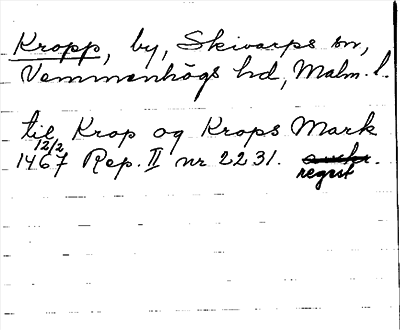 Kropp, by, Skivarps sn,
Vemmenhögs hd, Malm. l.
til Krop og Krops Mark
12/2
1467 Rep. II nr 2231.
regest